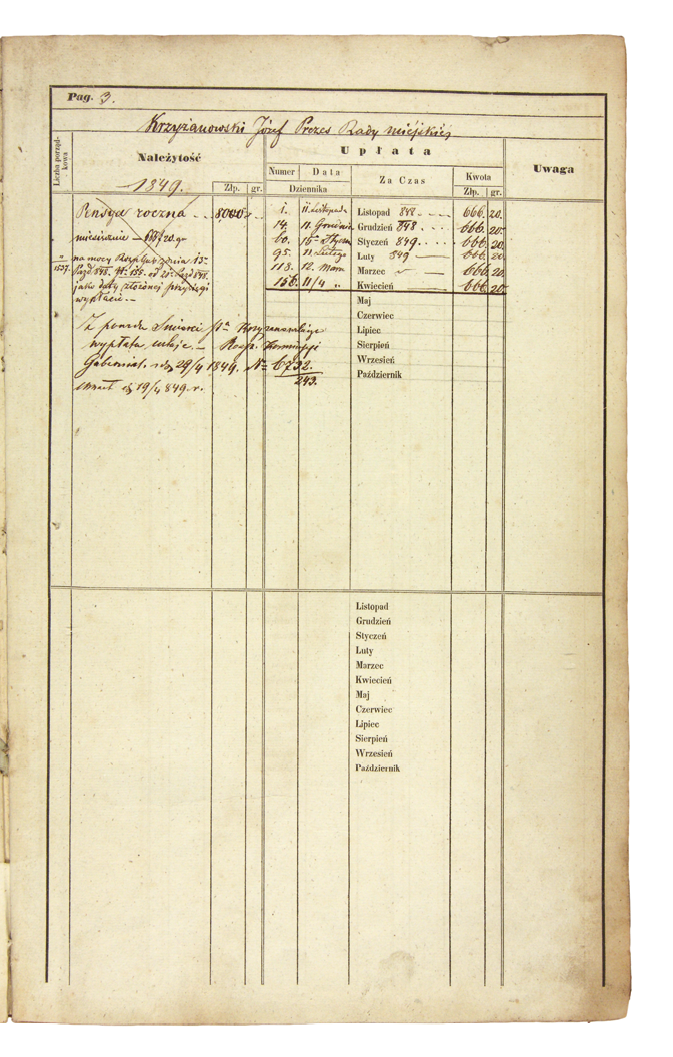 Pag. 3.
Krzyżanowski Józef Prezes Rady miejskiej
Liczba porządkowa
Należytość
1849.
Złp. gr.
Upłata
Numer Data
Dziennika
Za Czas
Kwota
Złp. gr.
Uwaga
Pensya roczna 8000
miesięcznie 666/20 gr
na mocy Rozp. Gub. z dnia 15
1537.
jako daty złożonej przysięgi
wypłacie.
1. 11. Listopada Listopad 848 666. 20.
14. 11. Grudnia Grudzień 848 666. 20.
60. 15 Stycznia Styczeń 849. 666. 20.
95. 11. Lutego Luty 849 666. 20.
118. 12. Marca Marzec 666. 20.
156. 11/4 " Kwiecień 666. 20.
Maj
Czerwiec
Lipiec
Sierpień
Wrzesień
Październik
Z powodu Śmierci Krzyżanowskiego
wypłata ustaje. – Rozp. Kommissyi
Gubernial. 29/4 1849. No 6732.
243.
19/4 849. r.
Listopad
Grudzień
Styczeń
Luty
Marzec
Kwiecień
Maj
Czerwiec
Lipiec
Sierpień
Wrzesień
Październik